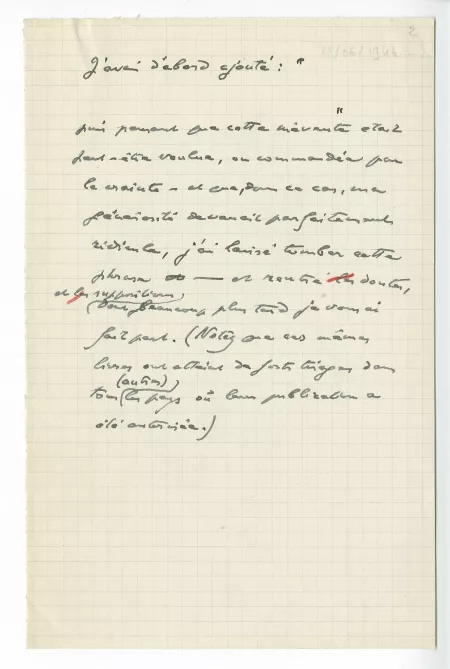 2
J'avais d'abord ajouté : "
puis pensant que cette mévente " était
peut-être voulue, ou commandée par
la crainte - et que, dans ce cas, ma
générosité devenait parfaitement
ridicule, j'ai laissé tomber cette
phrase — et rentré les doutes,
et les suppositions,
dont beaucoup plus tard je vous ai
fait part. (Notez que ces mêmes
livres ont atteint de forts tirages dans
(autres)
tous les pays où leur publication a
été autorisée.)